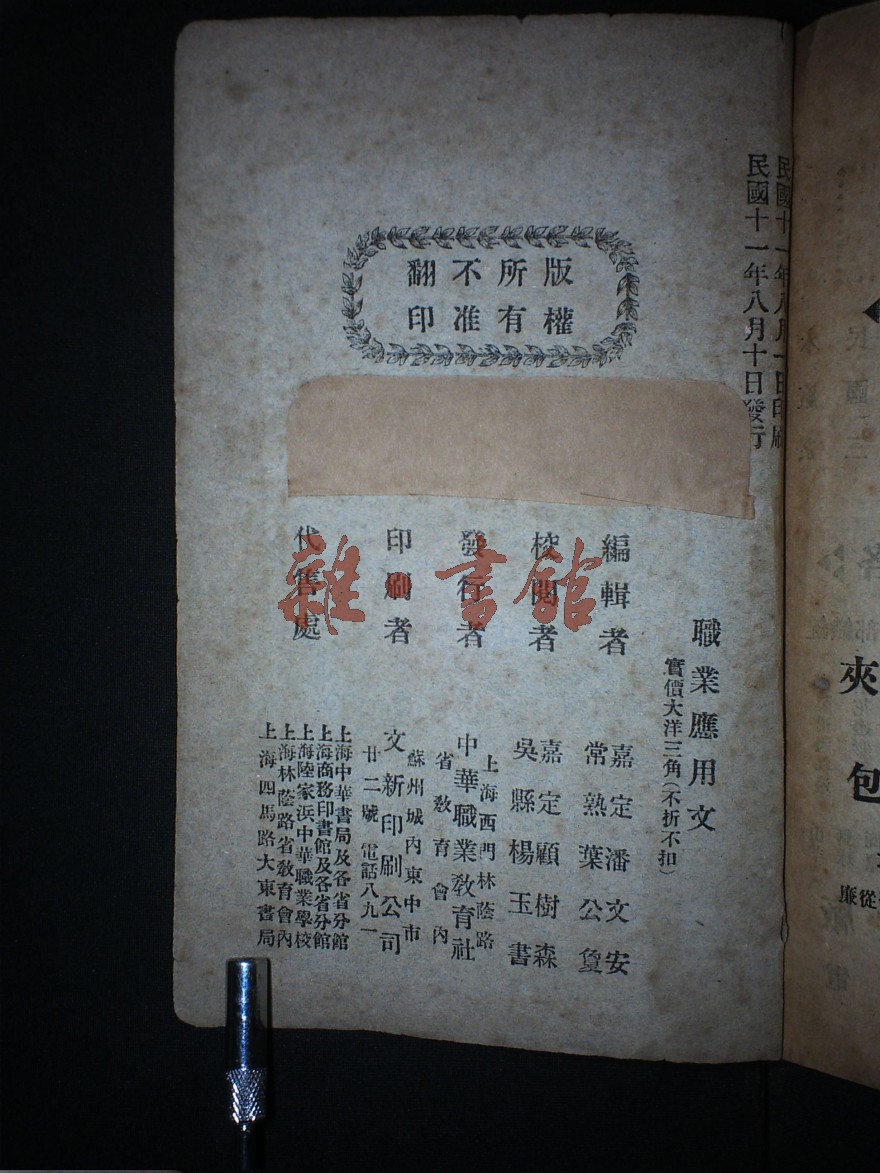 民國十一年八月一日印刷
民國十一年八月十日發行
版權所有不准翻印
職業應用文
實價大洋三角(不折不扣)
編輯者
嘉定潘文安
常熟葉公敻
校閱者
嘉定顧樹森
吳縣楊玉書
發行者
上海西門林蔭路
中華職業敎育社
省敎育會內
印刷者
蘇州城內東中市
文新印刷公司
廿二號 電話八九一
代售處
上海中華書局及各省分館
上海商務印書館及各省分館
上海陸家浜中華職業學校
上海林蔭路省敎育會內
上海四馬路大東書局
雜·書館
夾
包
從廉